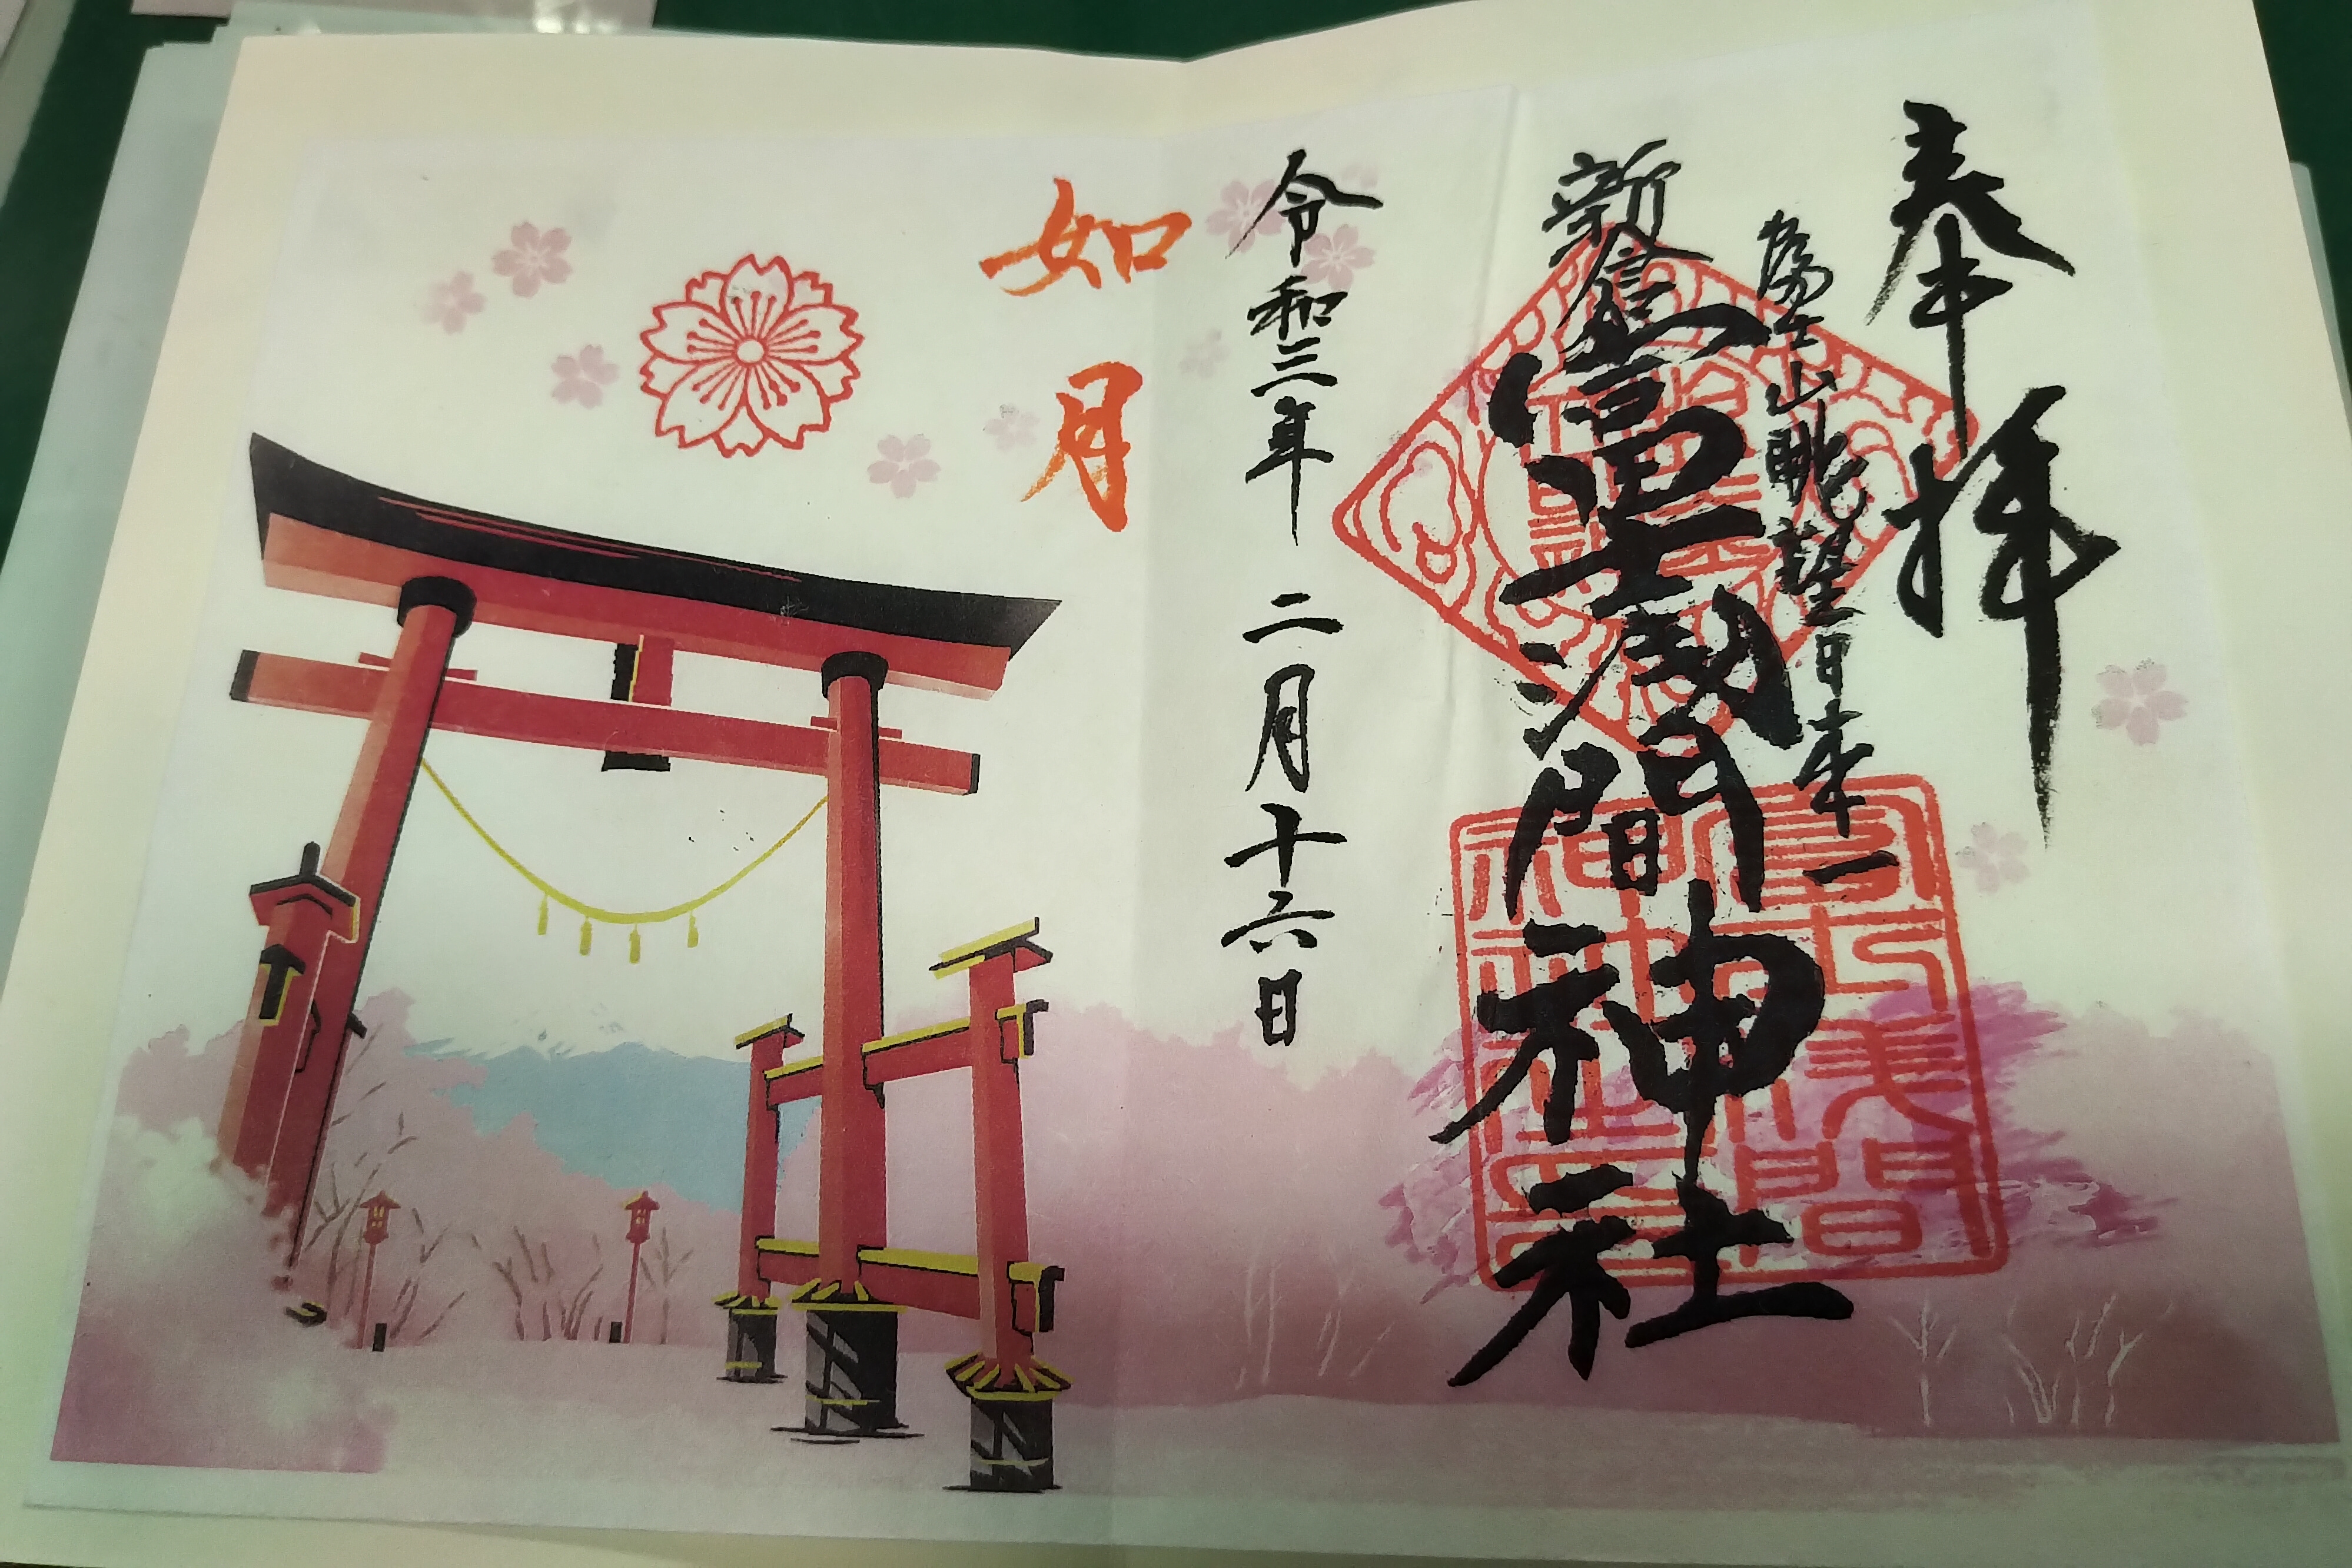 奉拝
冨士山眺望日本一
新倉
冨士浅間神社
令和三年 二月十六日
如月